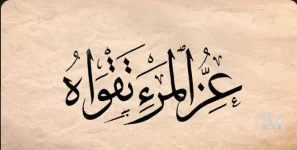 عِزُّ الْمَرْءِ تَقْوَاهُ
M